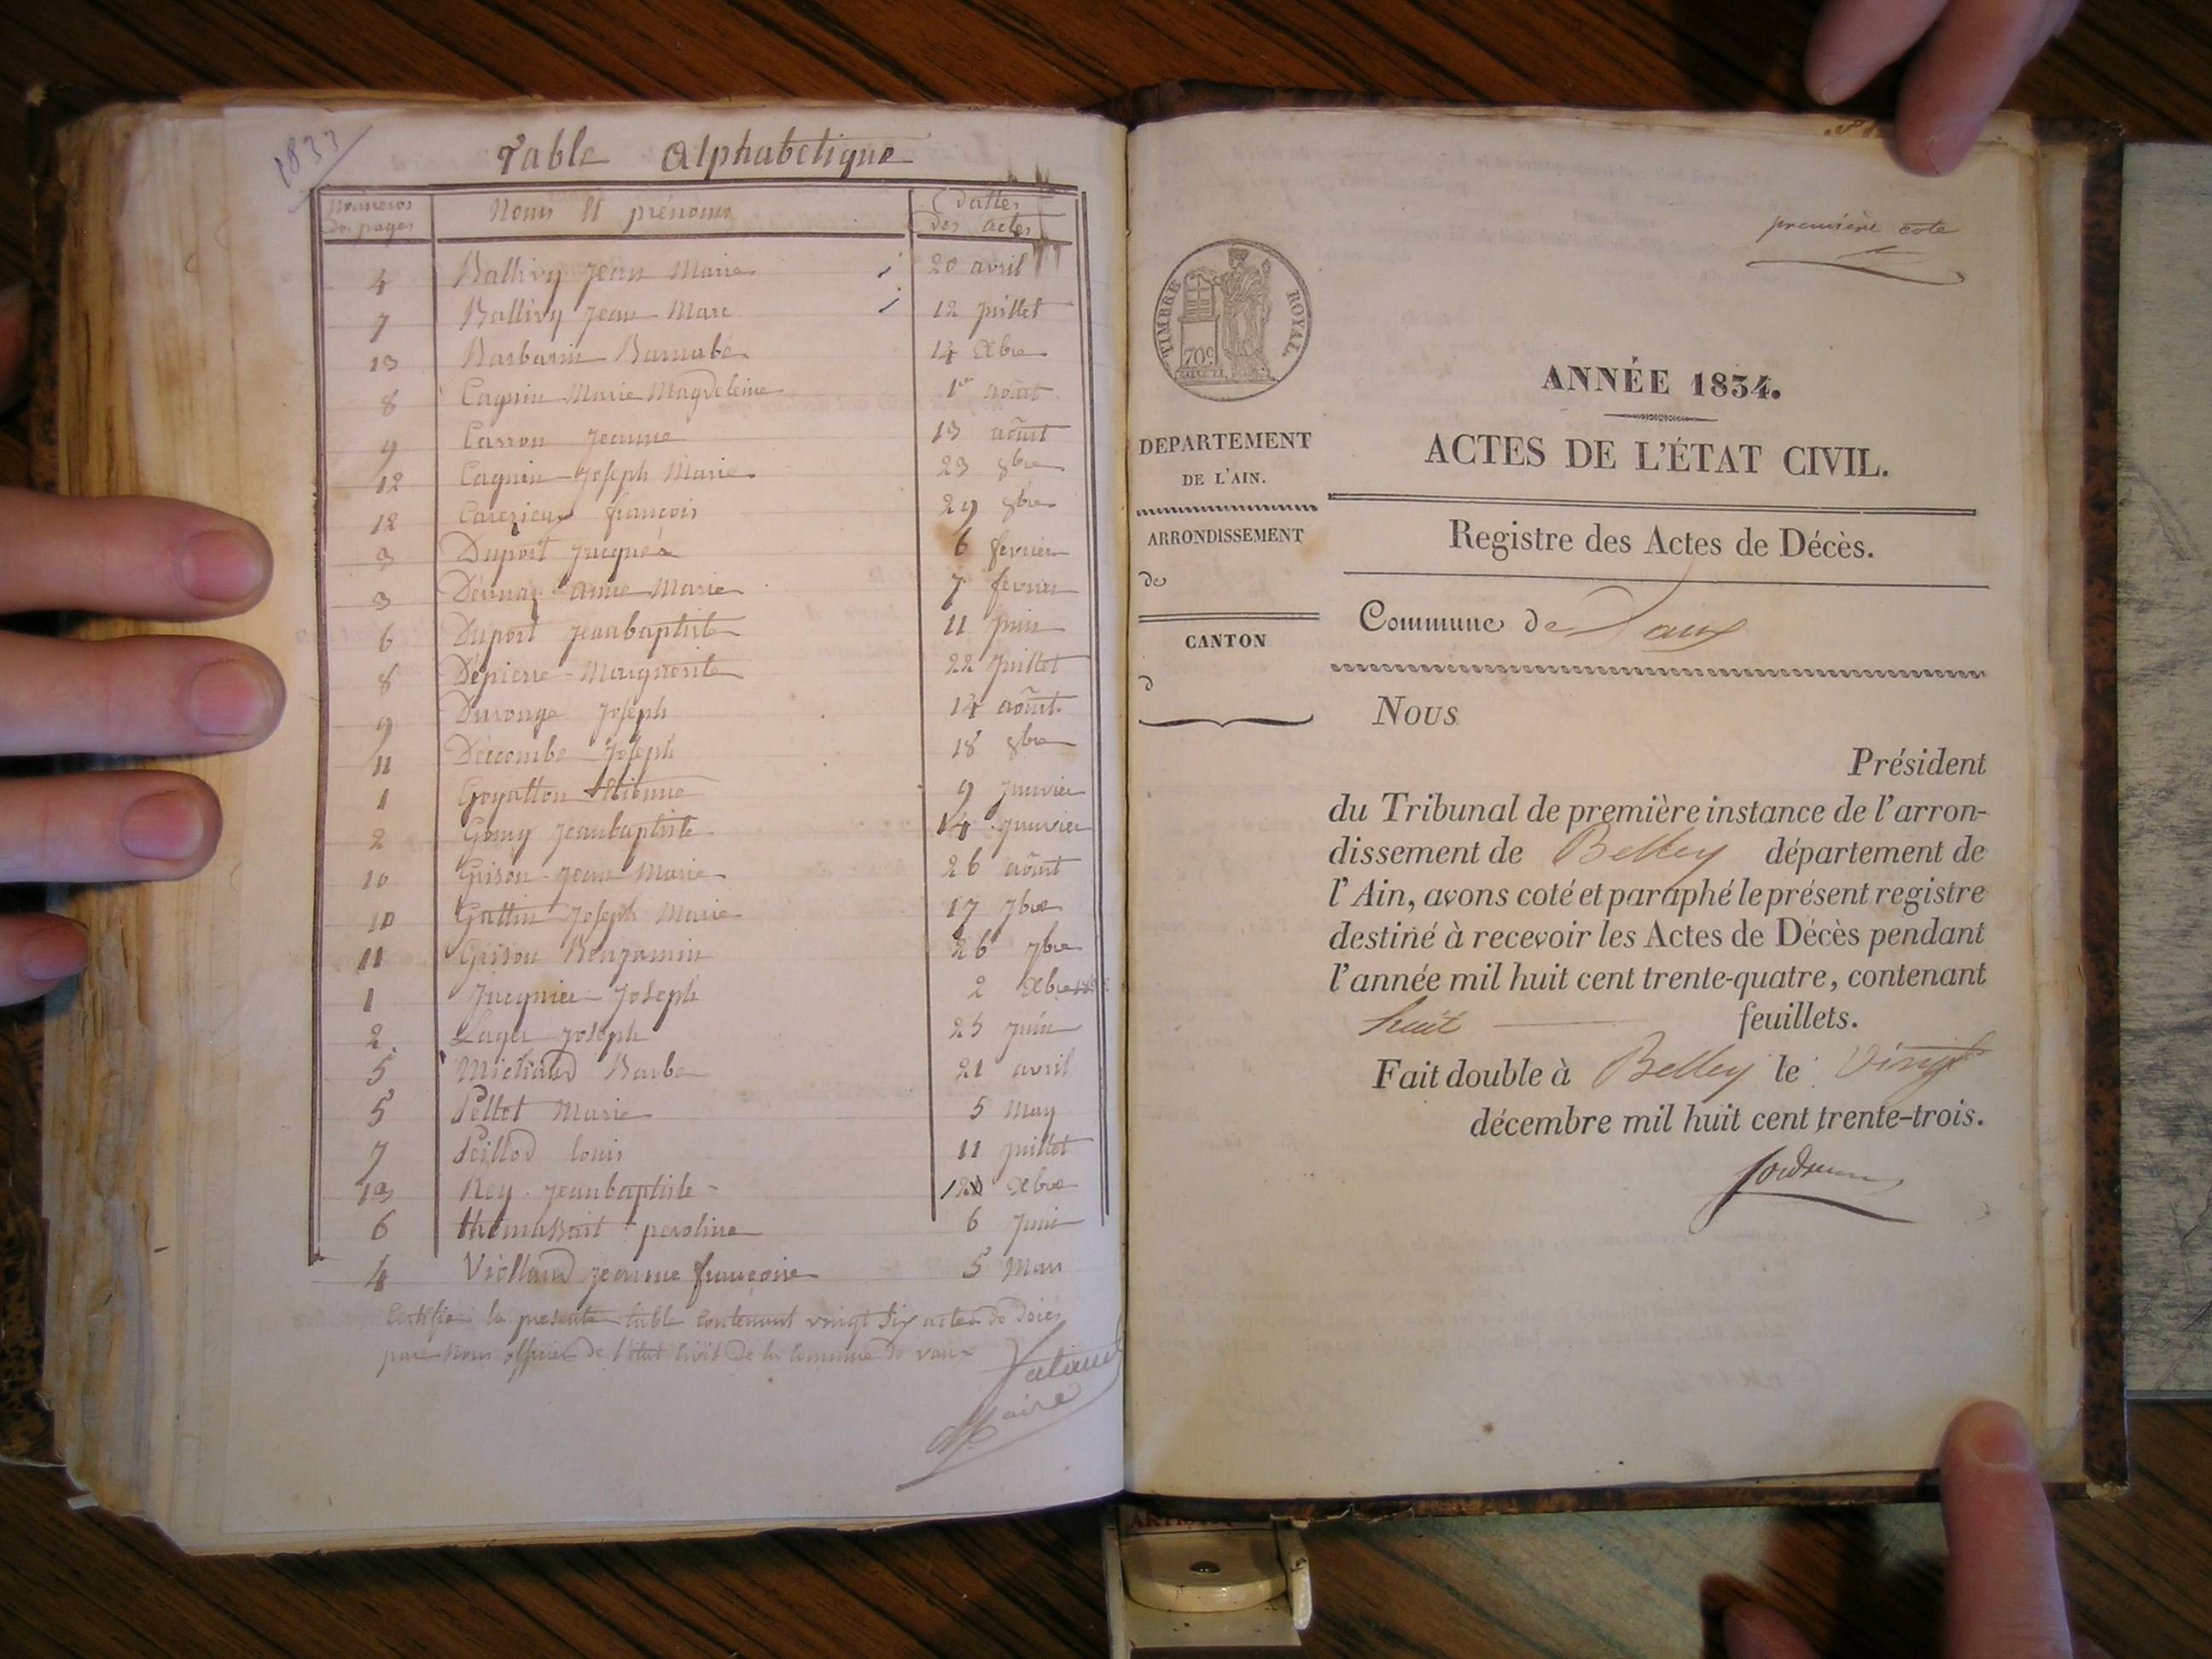 1833
Table Alphabetique
Numeros des pages Noms et prénoms Dattes des actes
4 Ballivy Jean Marie 20 avril
7 Ballivy Jean Marc 12 juillet
13 Barbarin Barnabé 14 Xbre
8 Cagnin Marie Magdeleine 1er aôut
9 Carron Jeanne 13 aôut
12 Cagnin Joseph Marie 23 8bre
12 françois 29 8bre
3 Duport Jacques 6 fevrier
3 anne Marie 7 fevrier
6 Duport Jeanbaptiste 11 juin
8 Dépierre Marguerite 22 Juillet
9 Durouge Joseph 14 aôut
11 Descombe Joseph 18 8bre
1 Goyatton Etienne 9 Janvier
2 Gomy Jeanbaptiste 14 Janvier
10 Grison Jean Marie 26 aôut
10 Gattin Joseph Marie 17 7bre
11 Grison Benjamin 26 7bre
1 Juenier Joseph 2 Xbre
2 Lager Joseph 25 juin
5 Michaud Barbe 21 avril
5 Pellet Marie 5 May
7 Peillod louis 11 juillet
13 Rey Jeanbaptiste Xbre
6 peroline 6 Juin
4 Viollaud jeanne françoise 5 Mars
Certifié la presente table Contenant vingt six actes de décès
par nous officier de l'état Civil de la Commune de vaux
Maire
première cote
TIMBRE ROYAL
70c
ANNÉE 1834.
ACTES DE L'ÉTAT CIVIL.
DEPARTEMENT
DE L'AIN.
ARRONDISSEMENT
de
CANTON
d
Registre des Actes de Décès.
Commune de Vaux
Nous
Président
du Tribunal de première instance de l'arron-
dissement de Belley département de
l'Ain, avons coté et paraphé le présent registre
destiné à recevoir les Actes de Décès pendant
l'année mil huit cent trente-quatre, contenant
huit feuillets.
Fait double à Belley le Vingt
décembre mil huit cent trente-trois.